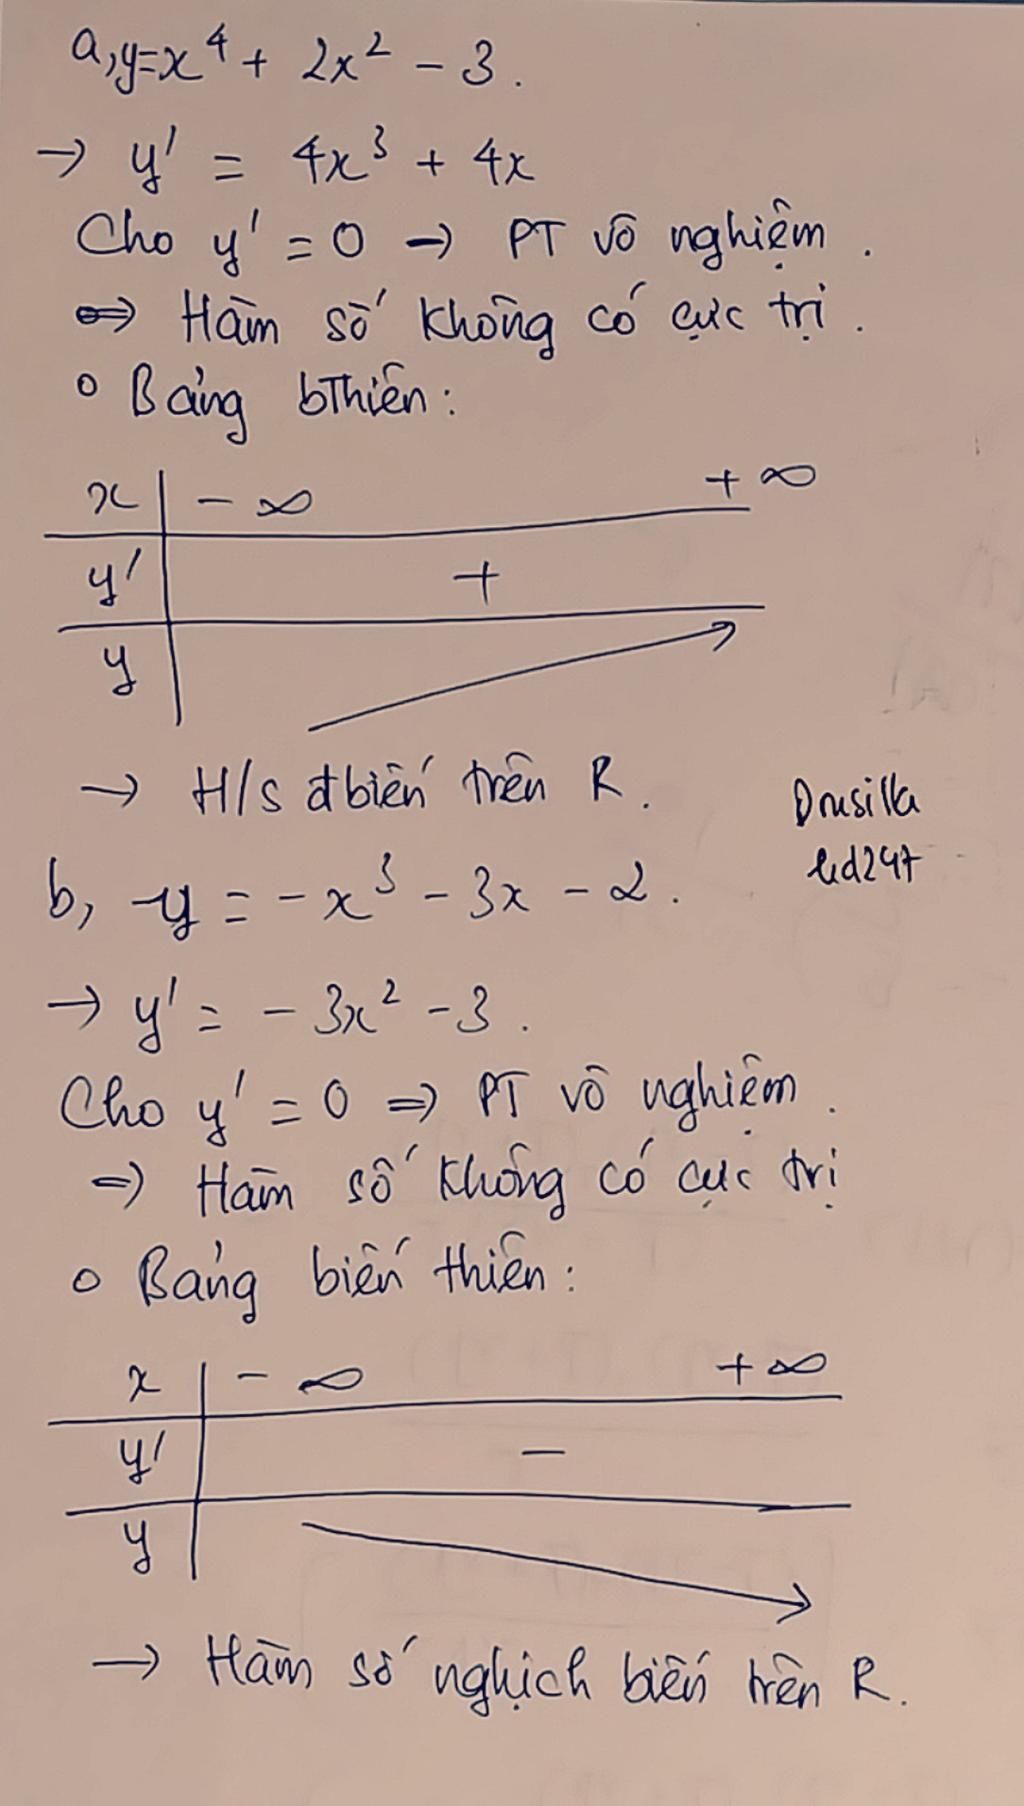 a, y=x⁴ + 2x² - 3.
→ y' = 4x³ + 4x
Cho y' = 0 → PT vô nghiệm.
⇔ Hàm số không có cực trị.
o Bảng bThiên:
x | -∞ +∞
y' | +
y
→ H/s đbiến trên R.
Drusilla
led247
b, y = -x³ - 3x - 2.
→ y' = -3x² - 3.
Cho y' = 0 ⇒ PT vô nghiệm.
⇒ Hàm số không có cực trị
o Bảng biến thiên:
x | -∞ +∞
y' | -
y
→ Hàm số nghịch biến trên R.